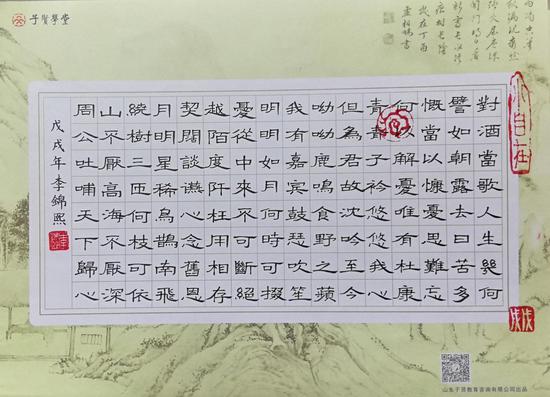 子贤学堂
對酒當歌人生幾何
譬如朝露去日苦多
慨當以慷憂思難忘
何以解憂唯有杜康
青青子衿悠悠我心
但為君故沈吟至今
呦呦鹿鳴食野之蘋
我有嘉賓鼓瑟吹笙
明明如月何時可掇
憂從中來不可斷絕
越陌度阡枉用相存
契闊談讌心念舊恩
月明星稀烏鵲南飛
繞樹三匝何枝可依
山不厭高海不厭深
周公吐哺天下歸心
戊戌年李錦熙
山东子贤教育咨询有限公司出品